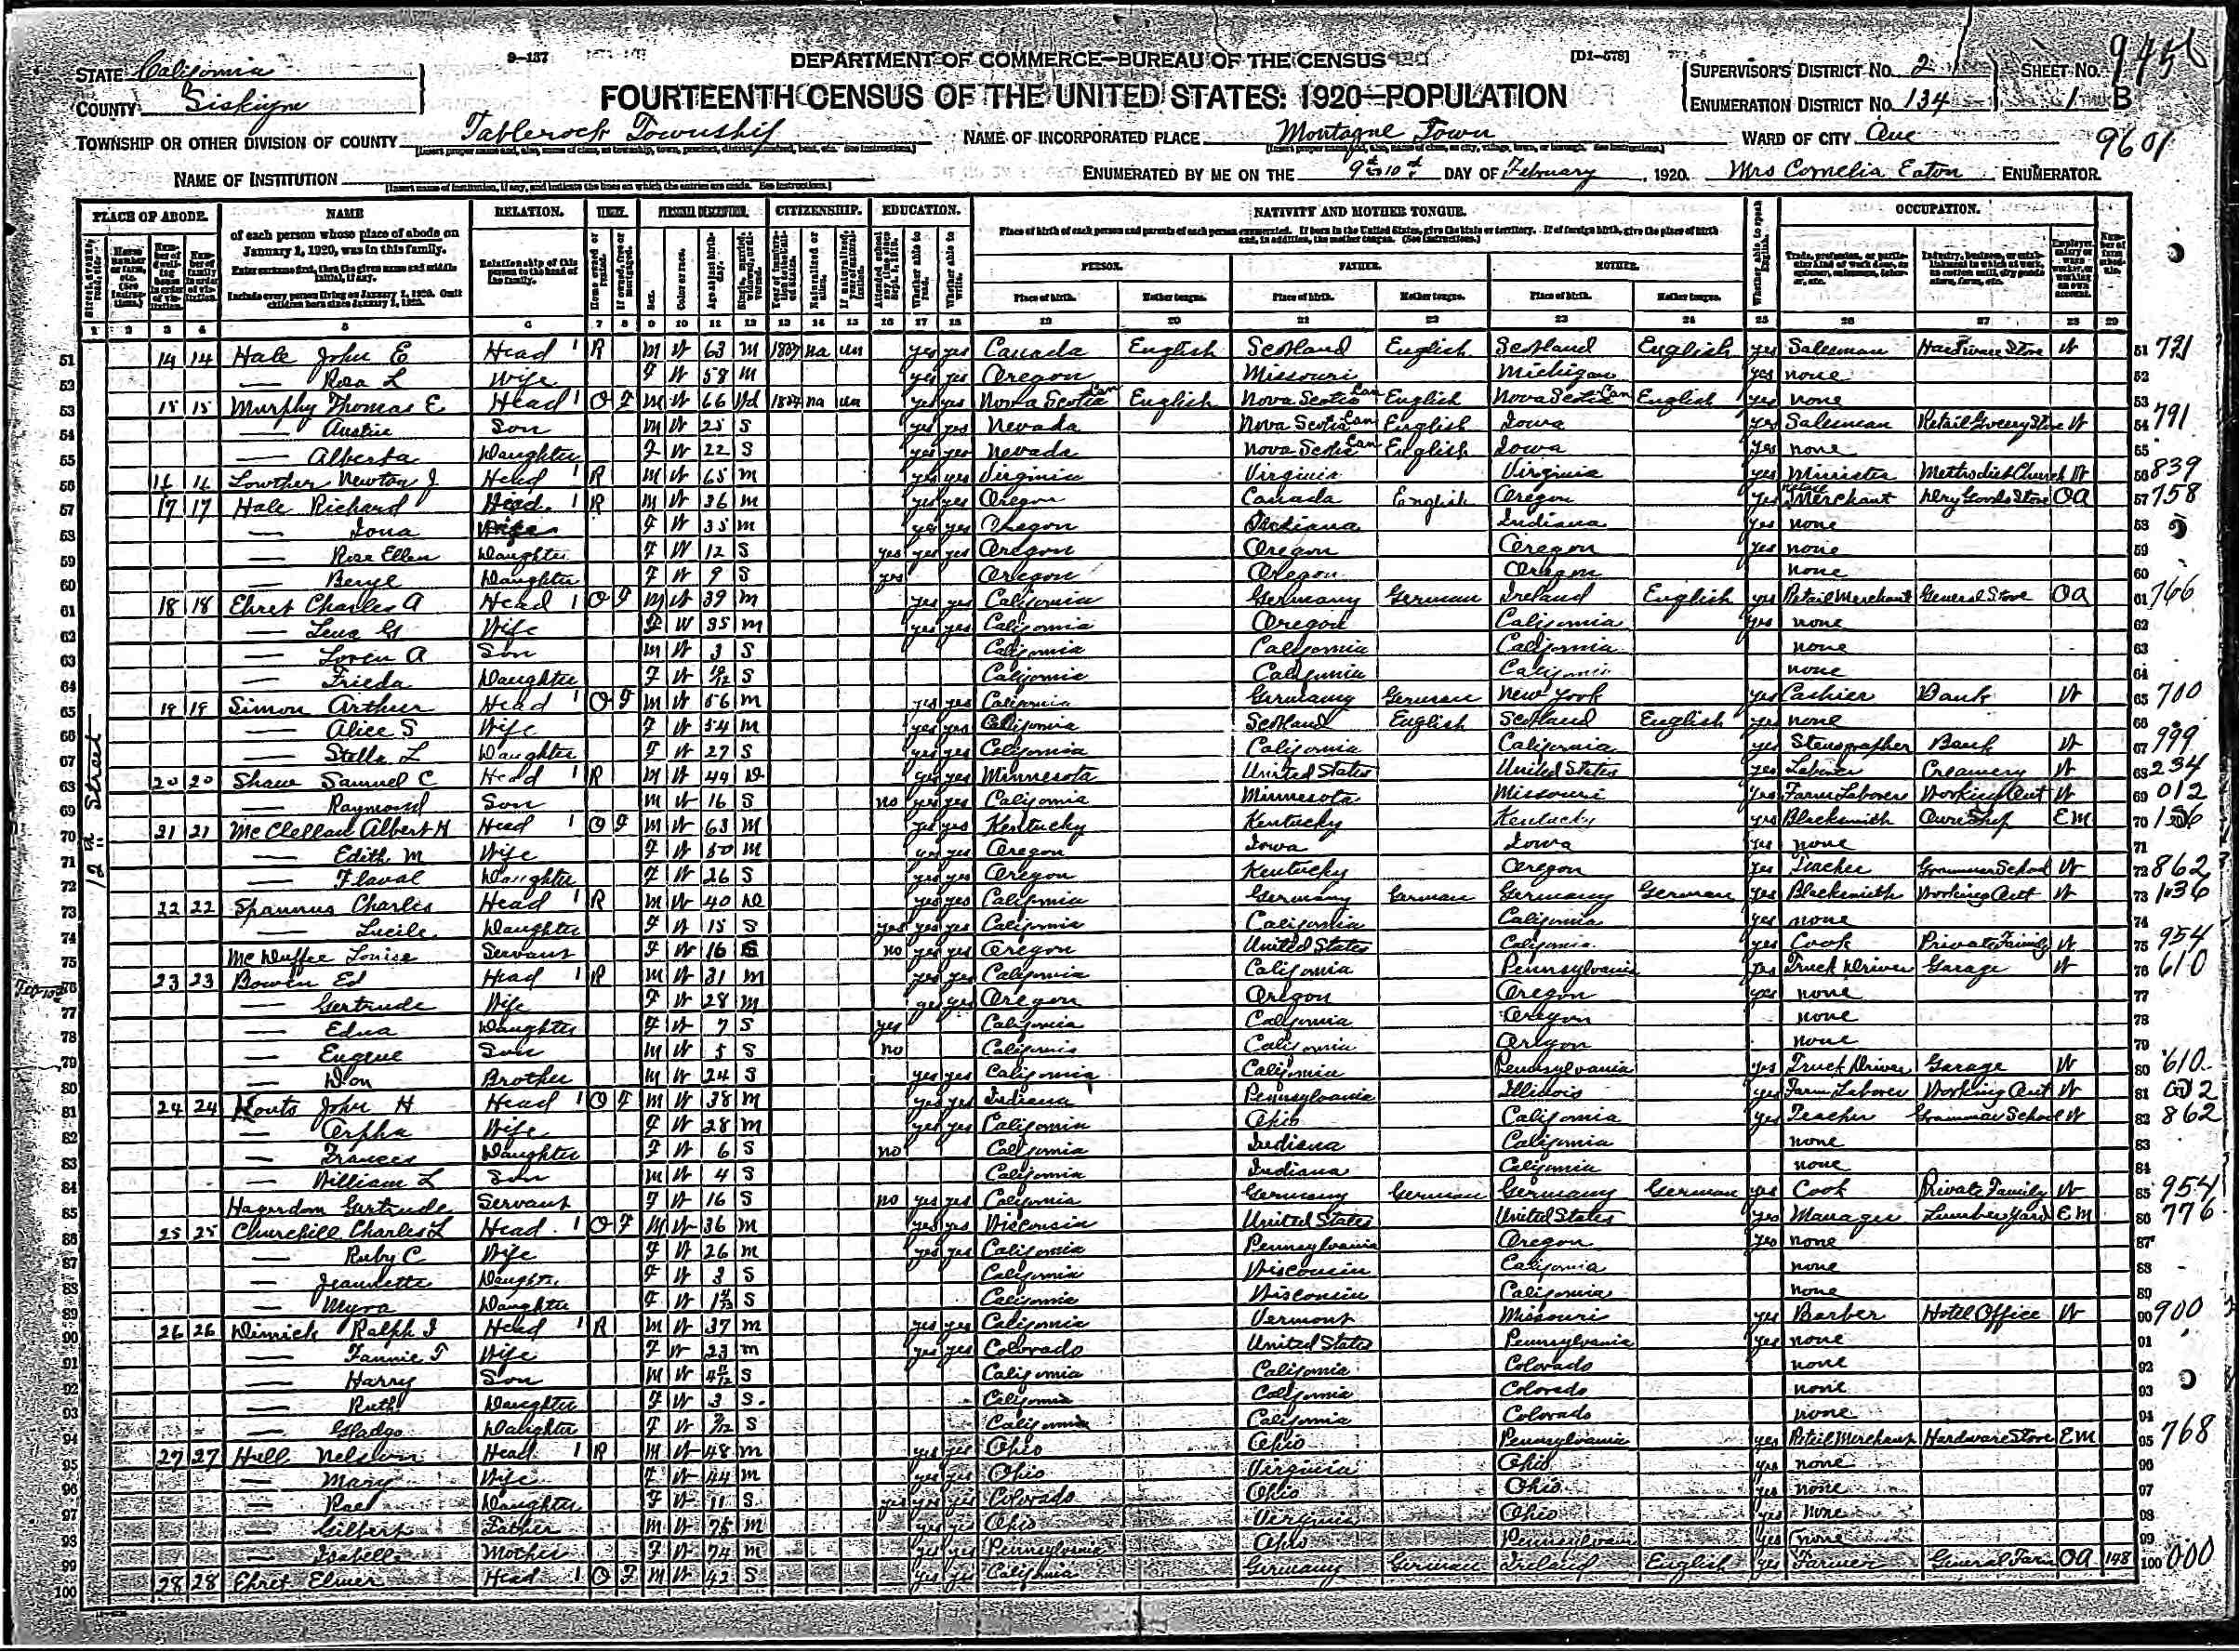 9-137 DEPARTMENT OF COMMERCE—BUREAU OF THE CENSUS [D1-578]
STATE California
COUNTY Siskiyou
FOURTEENTH CENSUS OF THE UNITED STATES: 1920—POPULATION
SUPERVISOR'S DISTRICT No. 2 SHEET No.
ENUMERATION DISTRICT No. 134 1 B
9601
TOWNSHIP OR OTHER DIVISION OF COUNTY Tablerock Township NAME OF INCORPORATED PLACE Montague Town WARD OF CITY
NAME OF INSTITUTION ENUMERATED BY ME ON THE DAY OF February, 1920. Mrs Cornelia Eaton ENUMERATOR.
PLACE OF ABODE. NAME RELATION. CITIZENSHIP. EDUCATION. NATIVITY AND MOTHER TONGUE. OCCUPATION.
of each person whose place of abode on January 1, 1920, was in this family.
PERSON. FATHER. MOTHER.
Place of birth. Mother tongue. Place of birth. Mother tongue. Place of birth. Mother tongue.
51 14 14 Hale John E Head 1 R M W 63 M na un yes yes Canada English Scotland English Scotland English yes Salesman Hardware Store W 51
52 — Rosa L Wife F W 58 M yes yes Oregon Missouri Michigan yes none 52
53 15 15 Murphy Thomas E Head 1 O F M W 66 Wd na un yes yes Nova Scotia Can English Nova Scotia Can English Nova Scotia Can English yes none 53
54 — Austin Son M W 25 S yes yes Nevada Nova Scotia Can English Iowa yes Salesman Retail Grocery Store W 54 791
55 — Alberta Daughter F W 22 S yes yes Nevada Nova Scotia Can English Iowa yes none 55
56 16 16 Lowther Newton J Head 1 R M W 65 M yes yes Virginia Virginia Virginia yes Minister Methodist Church W 56 839
57 17 17 Hale Richard Head 1 R M W 36 M yes yes Oregon Canada English Oregon yes Retail Merchant Dry Goods Store OA 57 758
58 — Iona Wife F W 35 M yes yes Oregon Indiana Indiana yes none 58
59 — Rose Ellen Daughter F W 12 S yes yes yes Oregon Oregon Oregon yes none 59
60 — Daughter F W 9 S yes Oregon Oregon Oregon none 60
61 18 18 Ehret Charles A Head 1 O F M W 39 M yes yes California Germany German Ireland English yes Retail Merchant General Store OA 61 766
62 — Lena G Wife F W 35 M yes yes California Oregon California yes none 62
63 — Loren A Son M W 3 S California California California none 63
64 — Frieda Daughter F W S California California California none 64
65 19 19 Simon Arthur Head 1 O F M W 56 M yes yes California Germany German New York yes Cashier Bank W 65 700
66 — Alice S Wife F W 54 M yes yes California Scotland English Scotland English yes none 66
67 — Stella L Daughter F W 27 S yes yes California California California yes Stenographer Bank W 67 999
68 20 20 Shaw Samuel C Head 1 R M W 49 D yes yes Minnesota United States United States yes Laborer Creamery W 68 234
69 — Raymond Son M W 16 S no yes yes California Minnesota Missouri yes Farm Laborer Working Out W 69 012
70 21 21 McClellan Albert H Head 1 O F M W 63 M yes yes Kentucky Kentucky Kentucky yes Blacksmith Own Shop EM 70
71 — Edith M Wife F W 50 M yes yes Oregon Iowa Iowa yes none 71
72 — Flaval Daughter F W 26 S yes yes Oregon Kentucky Oregon yes Teacher Grammar School W 72 862
73 22 22 Spannus Charles Head 1 R M W 40 D yes yes California Germany German Germany German yes Blacksmith Working Out W 73
74 — Lucile Daughter F W 15 S yes yes yes California California California yes none 74
75 McDuffee Louise Servant F W 16 S no yes yes Oregon United States California yes Cook Private Family W 75 954
76 23 23 Bowen Ed Head 1 R M W 31 M yes yes California California Pennsylvania yes Truck Driver Garage W 76 610
77 — Gertrude Wife F W 28 M yes yes Oregon Oregon Oregon yes none 77
78 — Edna Daughter F W 7 S yes California California Oregon none 78
79 — Eugene Son M W 5 S no California California Oregon none 79
80 — Don Brother M W 24 S yes yes California California Pennsylvania yes Truck Driver Garage W 80 610
81 24 24 Kouts John H Head 1 O F M W 38 M yes yes Indiana Pennsylvania Illinois yes Farm Laborer Working Out W 81 012
82 — Orpha Wife F W 28 M yes yes California Ohio California yes Teacher Grammar School W 82 862
83 — Frances Daughter F W 6 S no California Indiana California none 83
84 — William L Son M W 4 S California Indiana California none 84
85 Hagerdom Gertrude Servant F W 16 S no yes yes California Germany German Germany German yes Cook Private Family W 85 954
86 25 25 Churchill Charles L Head 1 O F M W 36 M yes yes Wisconsin United States United States yes Manager Lumber Yard EM 86 776
87 — Ruby C Wife F W 26 M yes yes California Pennsylvania Oregon yes none 87
88 — Jeannette Daughter F W 3 S California Wisconsin California none 88
89 — Myra Daughter F W S California Wisconsin California none 89
90 26 26 Dimick Ralph I Head 1 R M W 37 M yes yes California Vermont Missouri yes Barber Hotel Office W 90 900
91 — Fannie T Wife F W 23 M yes yes Colorado United States Pennsylvania yes none 91
92 — Harry Son M W S California California Colorado none 92
93 — Ruth Daughter F W 3 S California California Colorado none 93
94 — Gladys Daughter F W S California California Colorado none 94
95 27 27 Hull Nelson Head 1 R M W 48 M yes yes Ohio Ohio Pennsylvania yes Retail Merchant Hardware Store EM 95 768
96 — Mary Wife F W 44 M yes yes Ohio Virginia Ohio yes none 96
97 — Rae Daughter F W 11 S yes yes yes Colorado Ohio Ohio yes none 97
98 — Gilbert Father M W 75 M yes yes Ohio Virginia Ohio yes none 98
99 — Isabelle Mother F W 74 M yes yes Pennsylvania Ohio Pennsylvania yes none 99
100 28 28 Ehret Elmer Head 1 O F M W 42 S yes yes California Germany German Ireland English yes Farmer General Farm OA 148 100 000
12th Street